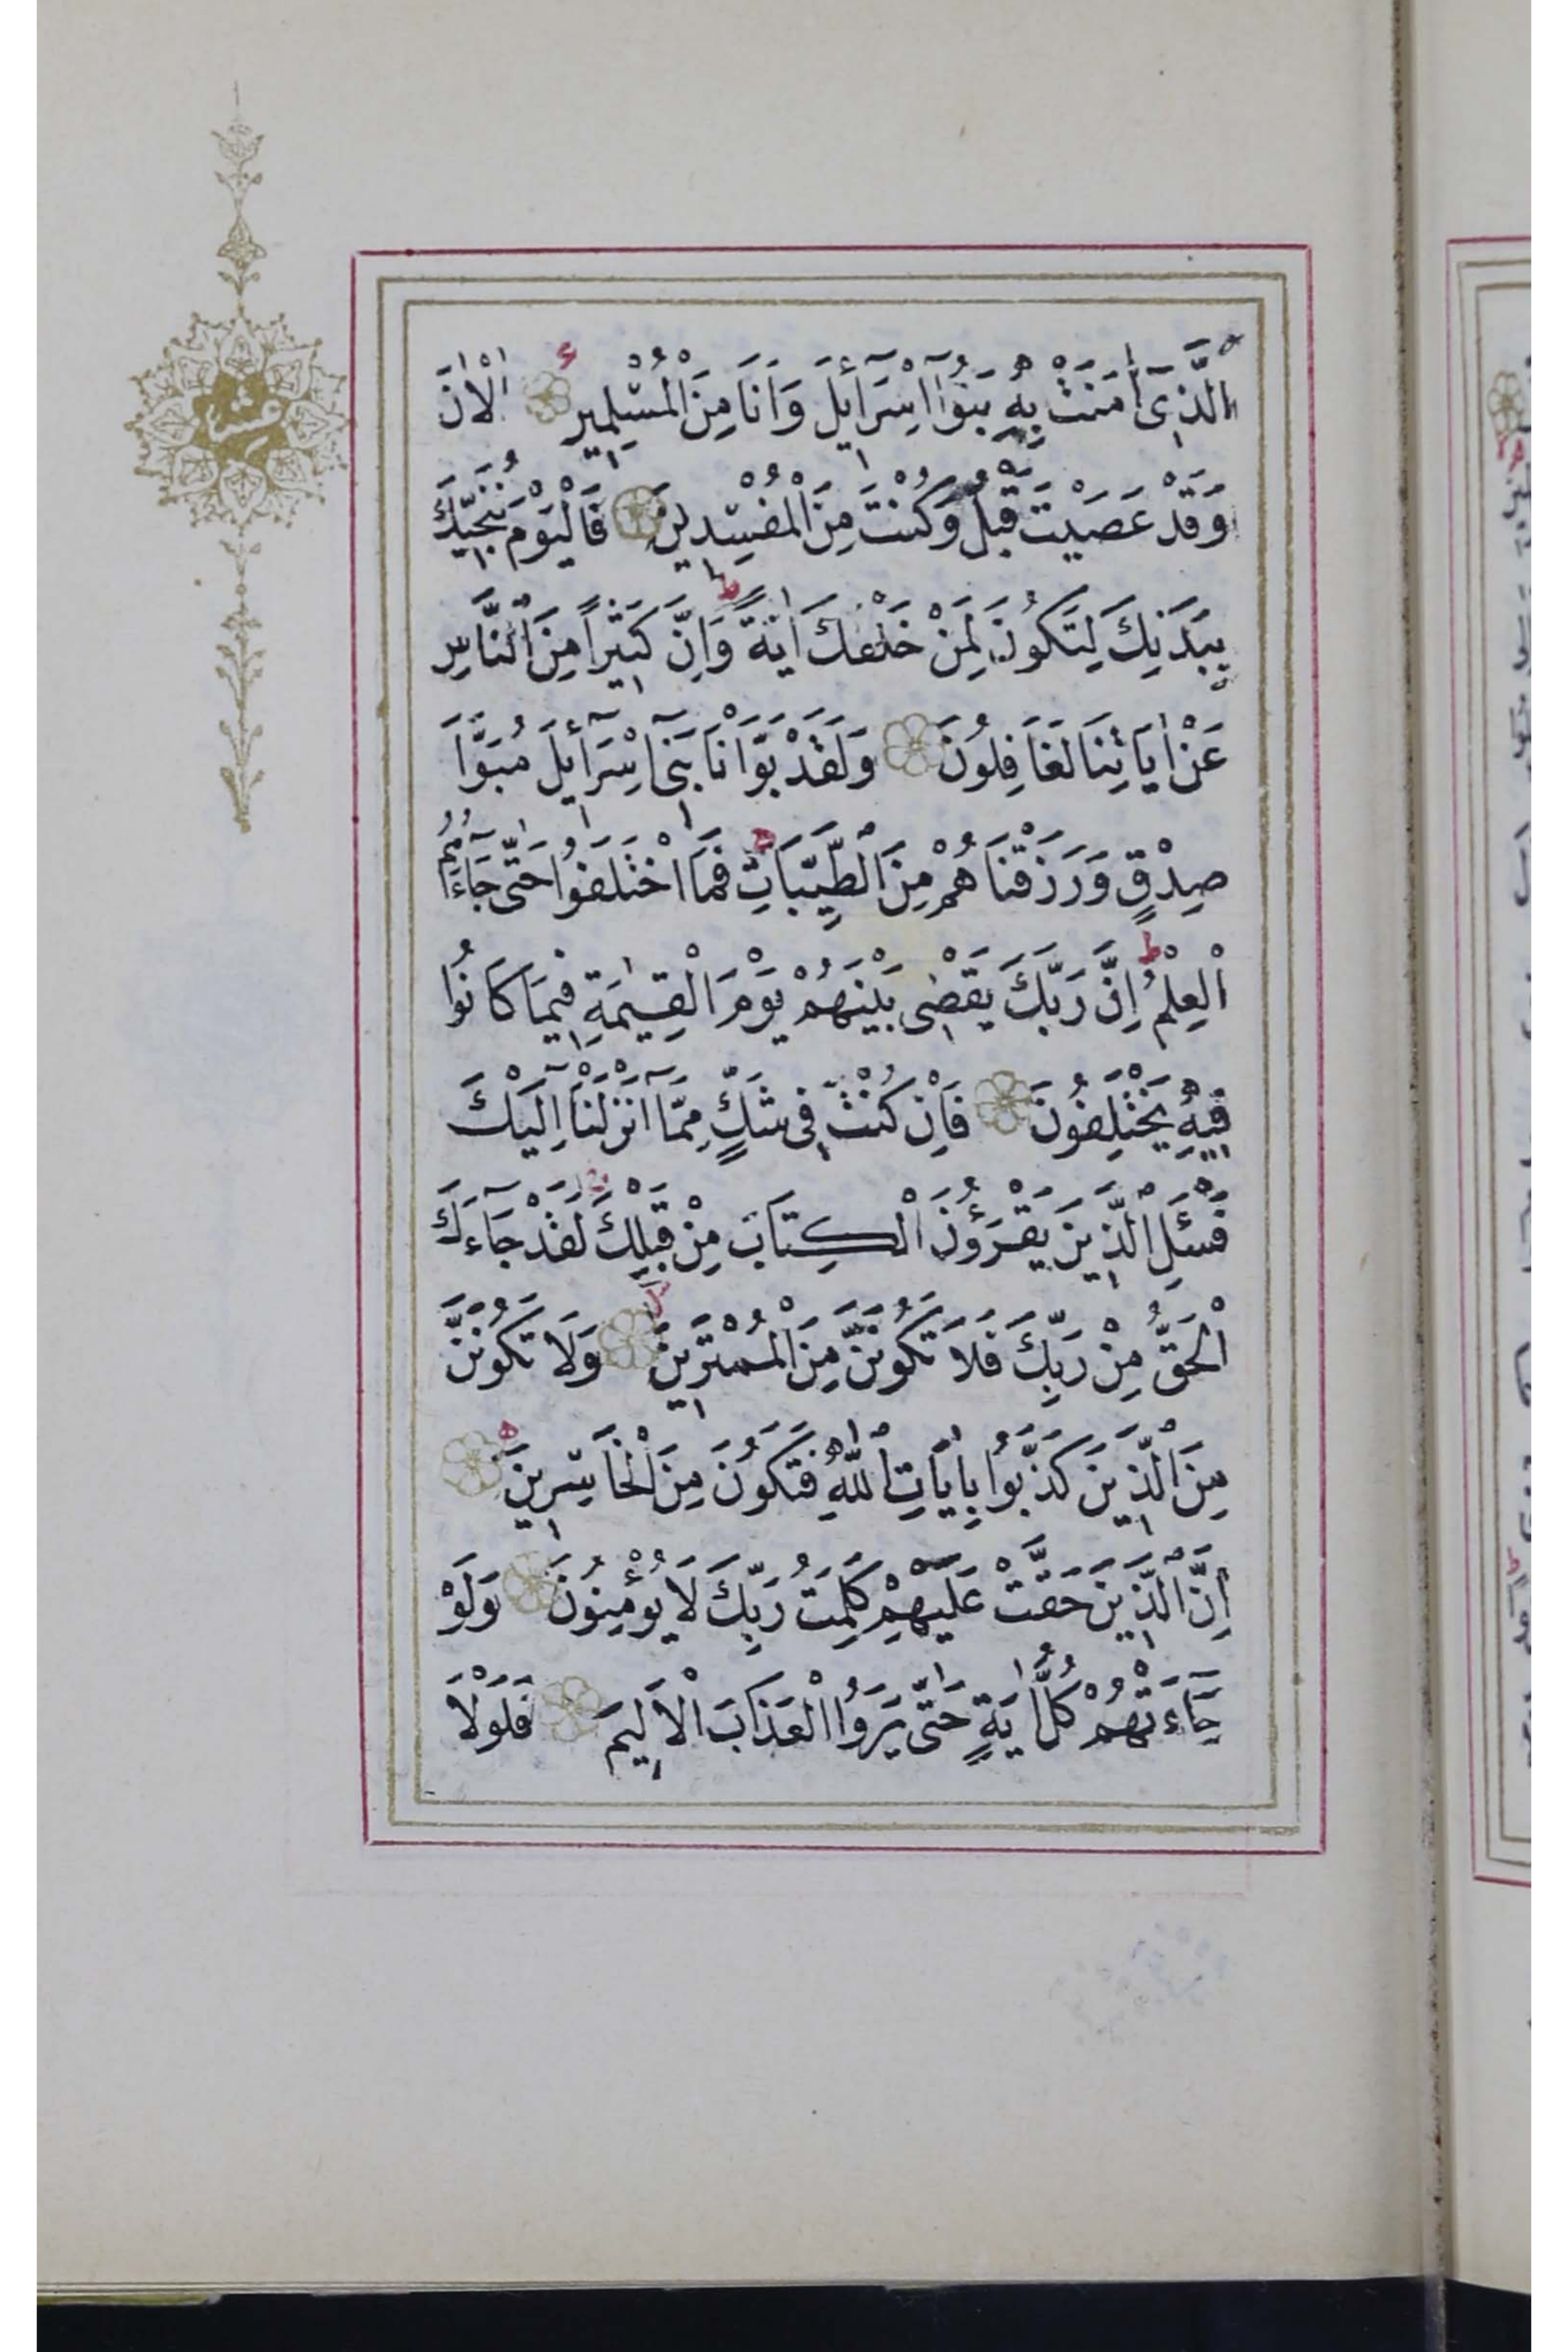 اَلَّذ۪ٓي اٰمَنَتْ بِه۪ بَنُٓوا اِسْرَٓائ۪لَ وَاَنَا مِنَ الْمُسْلِم۪ينَ اٰلْاٰنَ
وَقَدْ عَصَيْتَ قَبْلُ وَكُنْتَ مِنَ الْمُفْسِد۪ينَ فَالْيَوْمَ نُنَجّ۪يكَ
بِبَدَنِكَ لِتَكُونَ لِمَنْ خَلْفَكَ اٰيَةًۜ وَاِنَّ كَث۪يراً مِنَ النَّاسِ
عَنْ اٰيَاتِنَا لَغَافِلُونَ وَلَقَدْ بَوَّأْنَا بَن۪ٓي اِسْرَٓائ۪لَ مُبَوَّاَ
صِدْقٍ وَرَزَقْنَاهُمْ مِنَ الطَّيِّبَاتِۚ فَمَا اخْتَلَفُوا حَتّٰى جَٓاءَهُمُ
الْعِلْمُۜ اِنَّ رَبَّكَ يَقْض۪ي بَيْنَهُمْ يَوْمَ الْقِيٰمَةِ ف۪يمَا كَانُوا
ف۪يهِ يَخْتَلِفُونَ فَاِنْ كُنْتَ ف۪ي شَكٍّ مِمَّٓا اَنْزَلْنَٓا اِلَيْكَ
فَسْـَٔلِ الَّذ۪ينَ يَقْرَؤُنَ الْكِتَابَ مِنْ قَبْلِكَۚ لَقَدْ جَٓاءَكَ
الْحَقُّ مِنْ رَبِّكَ فَلَا تَكُونَنَّ مِنَ الْمُمْتَر۪ينَۙ وَلَا تَكُونَنَّ
مِنَ الَّذ۪ينَ كَذَّبُوا بِاٰيَاتِ اللّٰهِ فَتَكُونَ مِنَ الْخَاسِر۪ينَ
اِنَّ الَّذ۪ينَ حَقَّتْ عَلَيْهِمْ كَلِمَتُ رَبِّكَ لَا يُؤْمِنُونَ وَلَوْ
جَٓاءَتْهُمْ كُلُّ اٰيَةٍ حَتّٰى يَرَوُا الْعَذَابَ الْاَل۪يمَ فَلَوْلَا